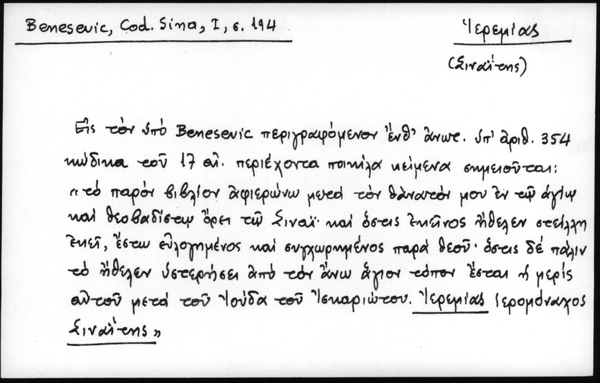 Benesevic, Cod. Sina, I, σ. 194
Ἱερεμίας
(Σιναΐτης)
Εἰς τὸν ὑπὸ Benesevic περιγραφόμενον ἔνθ' ἄνωτ. ὑπ' ἀριθ. 354
κώδικα τοῦ 17 αἰ. περιέχοντα ποικίλα κείμενα σημειοῦται:
«τὸ παρὸν βιβλίον ἀφιερώνω μετὰ τὸν θάνατόν μου ἐν τῷ ἁγίῳ
καὶ θεοβαδίστῳ ὄρει τῷ Σιναΐ· καὶ ὅστις ἐκεῖνος ἤθελεν στείλῃ
ἐκεῖ, ἔστω εὐλογημένος καὶ συγχωρημένος παρὰ θεοῦ· ὅστις δὲ πάλιν
τὸ ἤθελεν ὑστερήσει ἀπὸ τὸν ἄνω ἅγιον τόπον ἔσται ἡ μερίς
αὐτοῦ μετὰ τοῦ Ἰούδα τοῦ Ἰσκαριώτου. Ἱερεμίας ἱερομόναχος
Σιναΐτης»